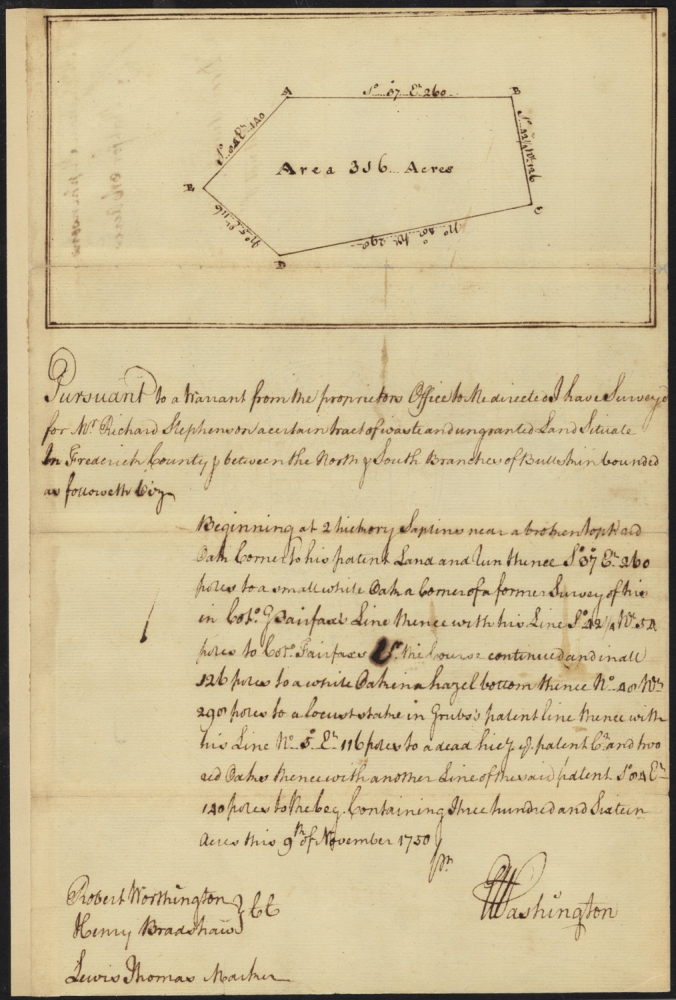 A
So 37 Er 260
B
So 84 Er 140
So 42¼ Wr 126
Area 316 Acres
E
C
No 5 Er 116
No 40 Wr 290
D
Pursuant to a Warrant from the proprietors Office to Me directed I have Surveyed
for Mr Richard Stephenson a certain tract of waste and ungranted Land Situate
In Frederick County & between the North & South Branches of Bullskin bounded
as followeth Viz
Beginning at 2 hickory Saplins near a broken topt red
Oak Corner to his patent Land and run thence So 37 Er 260
poles to a small white Oak a Corner of a former Survey of his
in Colo. G Fairfaxs Line thence with his Line So 42¼ Wr 54
poles to Colo. Fairfaxs the Course continued and in all
126 poles to a white Oak in a hazel bottom thence No 40 Wr
290 poles to a locust stake in Grubs's patent line thence with
his Line No 5 Er 116 poles to a dead hicy patent Cr and two
red Oaks thence with another Line of the said patent So 84 Er
140 poles to the beg. Containing Three hundred and Sixteen
Acres this 9th of November 1750
pr
Robert Worthington
Henry Bradshaw } CC
GWashington
Lewis Thomas Marker